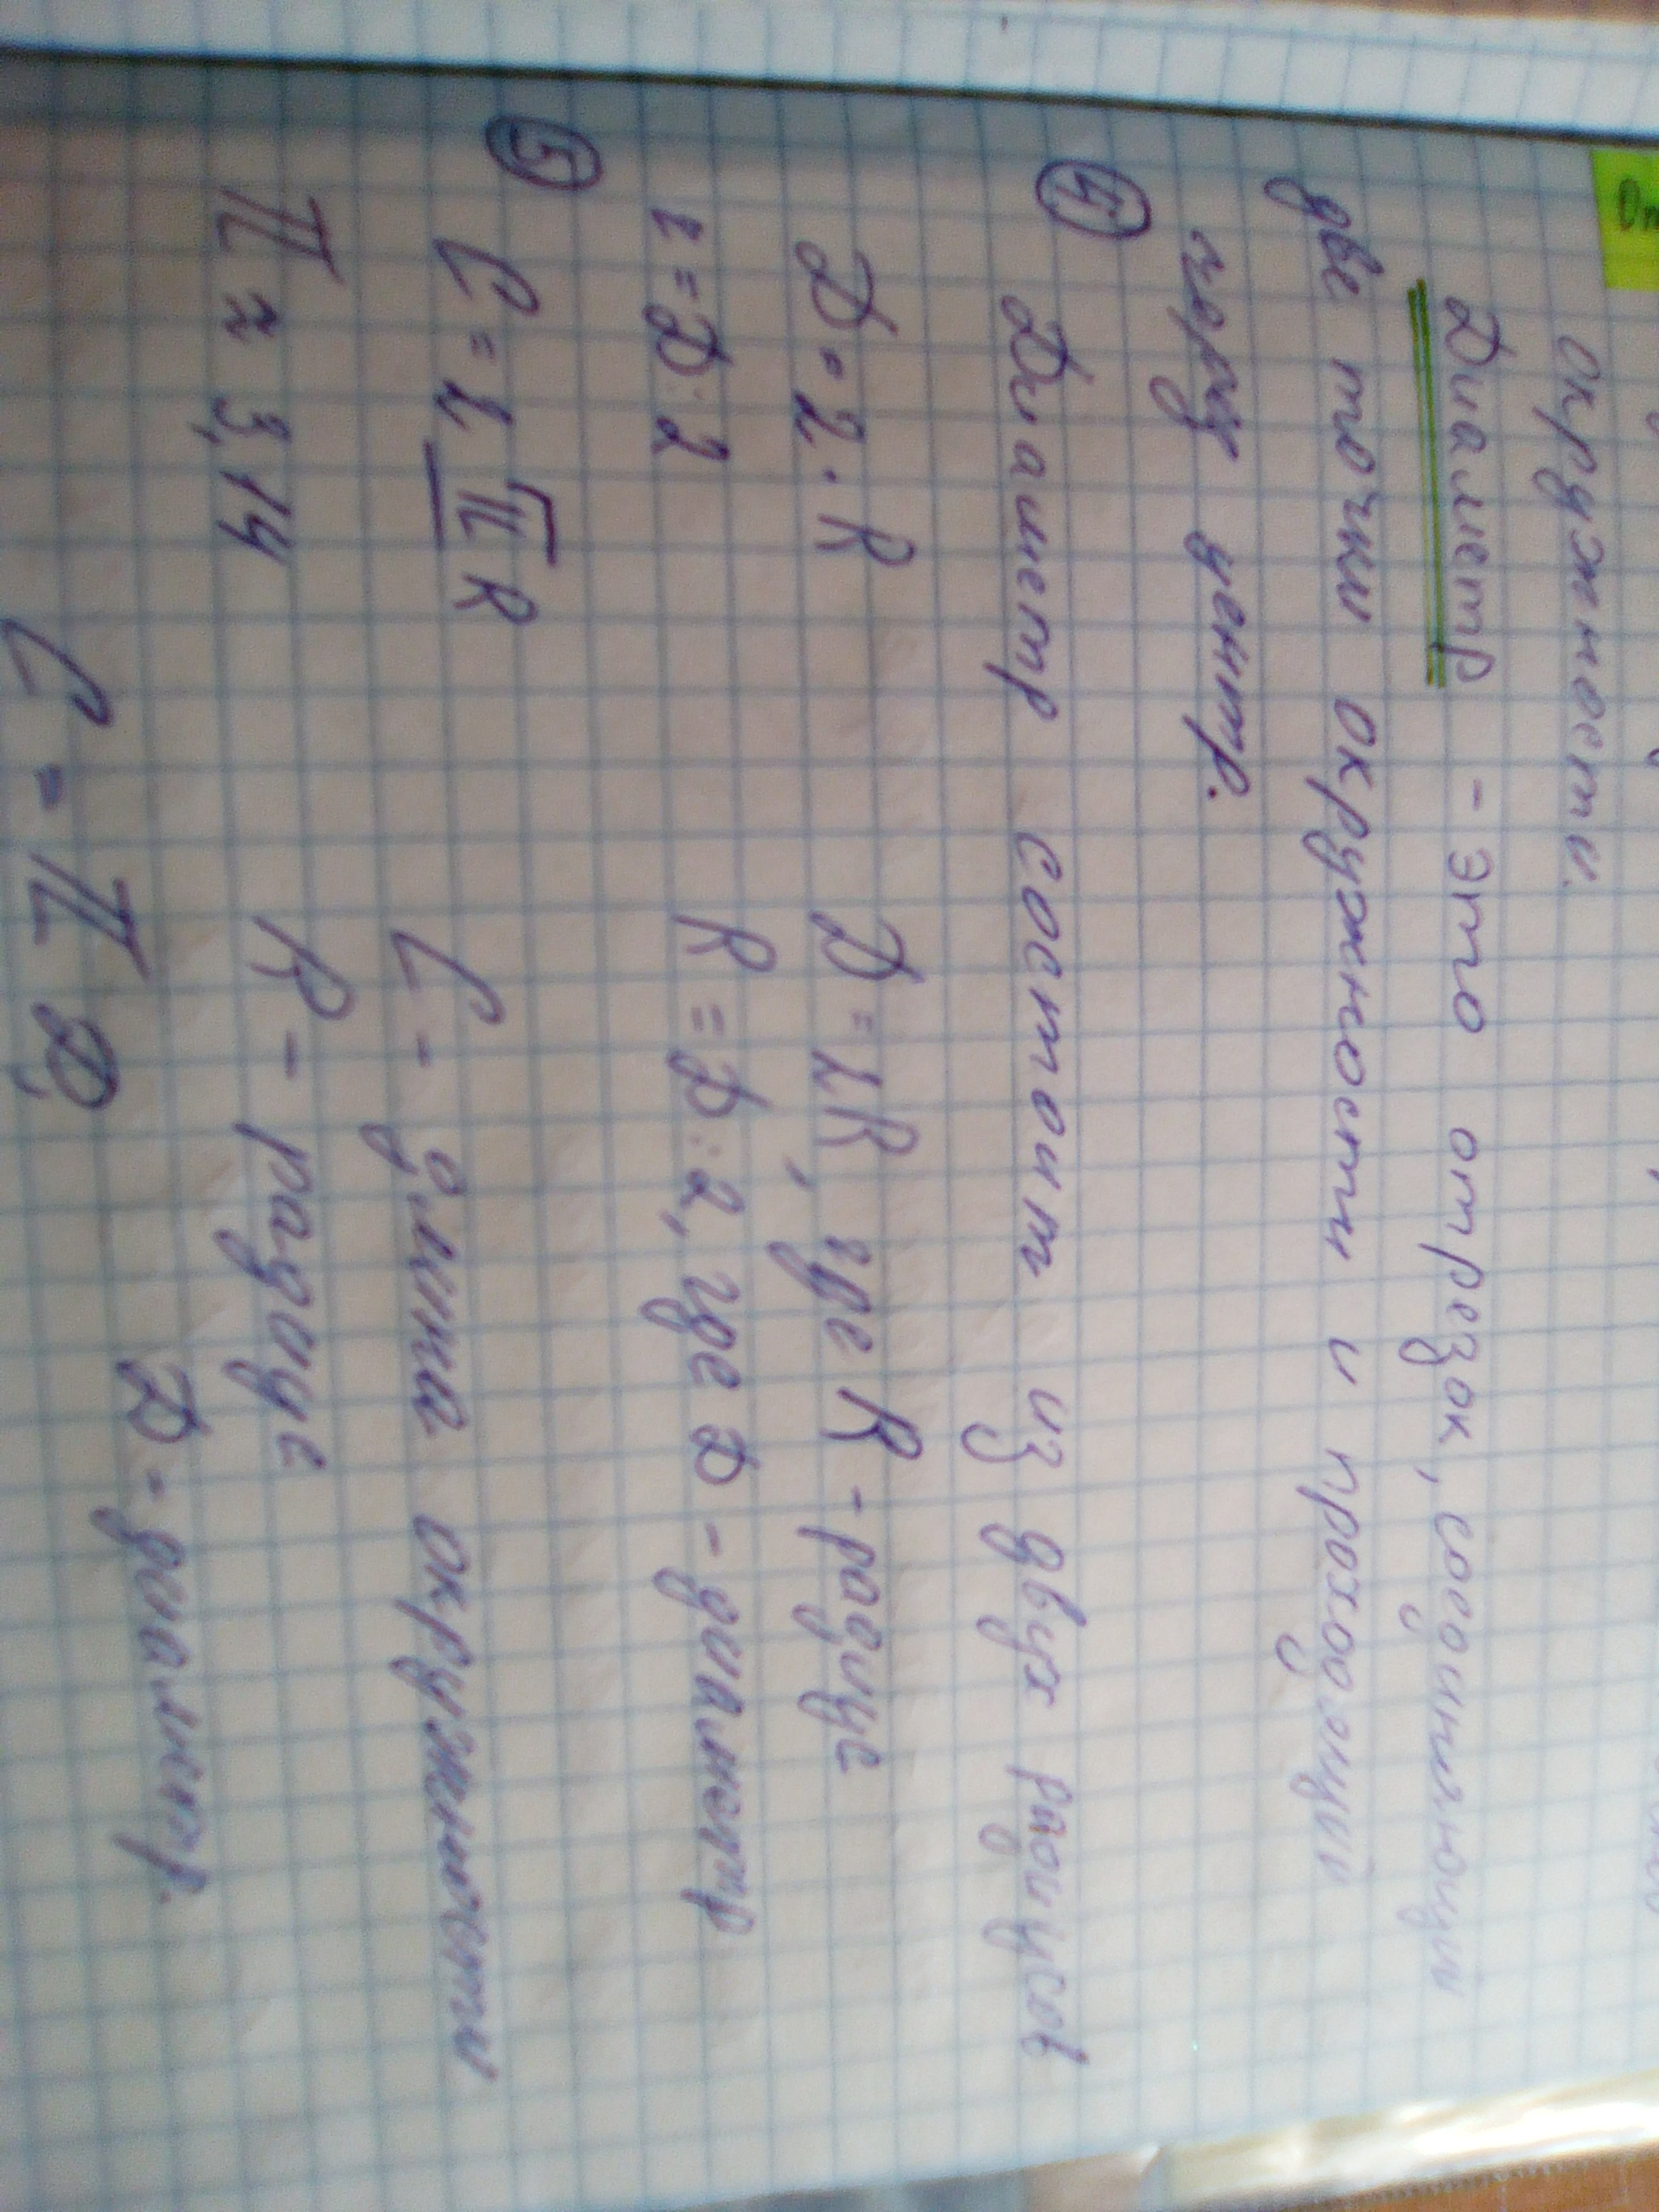 Оп
окружности.
Диаметр - это отрезок, соединяющий
две точки окружности и проходящий
через центр.
④ Диаметр состоит из двух радиусов
D = 2 · R D = 2R, где R - радиус
r = D : 2 R = D : 2, где D - диаметр
⑤ C = 2 π R C - длина окружности
π ≈ 3,14 R - радиус
D - диаметр.
C = π D